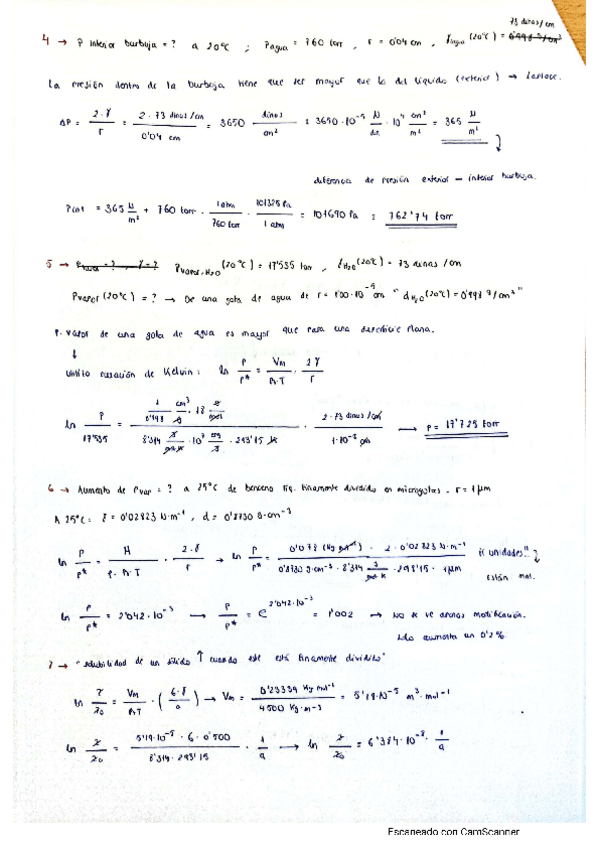 73 dinas/cm
4 → P interior burbuja = ? a 20ºC ; Pagua = 760 torr , r = 0'04 cm , γagua (20ºC) = 0'998 g/cm³
La presión dentro de la burbuja tiene que ser mayor que la del líquido (exterior) → Laplace.
ΔP = 2·γ / r = 2·73 dinas/cm / 0'04 cm = 3650 dinas / cm² = 3650·10⁻⁵ N / din · 10⁴ cm² / m² = 365 N / m²
diferencia de presión exterior – interior burbuja.
Pint = 365 N / m² + 760 torr · 1 atm / 760 torr · 101325 Pa / 1 atm = 101690 Pa = 762'74 torr
5 → Pvapor = ? γ = ? Pvapor, H₂O (20ºC) = 17'535 torr , γH₂O (20ºC) = 73 dinas/cm
Pvapor (20ºC) = ? → De una gota de agua de r = 1'00·10⁻⁵ cm "dH₂O (20ºC) = 0'998 g/cm³"
P. vapor de una gota de agua es mayor que para una superficie plana.
↓
Utilizo ecuación de Kelvin: ln P / P* = Vm / R·T · 2γ / r
ln P / 17'535 = 1 / 0'998 cm³ / g · 18 g / mol / 8'314 J / mol·K · 10⁷ erg / J · 293'15 K · 2·73 dinas/cm / 1·10⁻⁵ cm → P = 17'725 torr
6 → Aumento de Pvap = ? a 25ºC de benceno líq. finamente dividido en microgotas. r = 1 μm
A 25ºC: γ = 0'02823 N·m⁻¹ , d = 0'8730 g·cm⁻³
ln P / P* = M / ρ·R·T · 2·γ / r → ln P / P* = 0'078 (kg mol⁻¹) · 2·0'02823 N·m⁻¹ / 0'8730 g·cm⁻³ · 8'314 J / mol·K · 298'15 · 1 μm ¡¡ unidades!!
están mal.
ln P / P* = 2'042·10⁻³ → P / P* = e^2'042·10⁻³ = 1'002 → No se ve apenas modificación.
Sólo aumenta un 0'2%
7 → "solubilidad de un sólido ↑ cuando este está finamente dividido"
ln χ / χ₀ = Vm / R·T · (6·γ / a) → Vm = 0'23339 kg mol⁻¹ / 4500 kg·m⁻³ = 5'19·10⁻⁵ m³·mol⁻¹
ln χ / χ₀ = 5'19·10⁻⁵ · 6 · 0'500 / 8'314 · 293'15 · 1 / a → ln χ / χ₀ = 6'384·10⁻⁸ · 1 / a
Escaneado con CamScanner